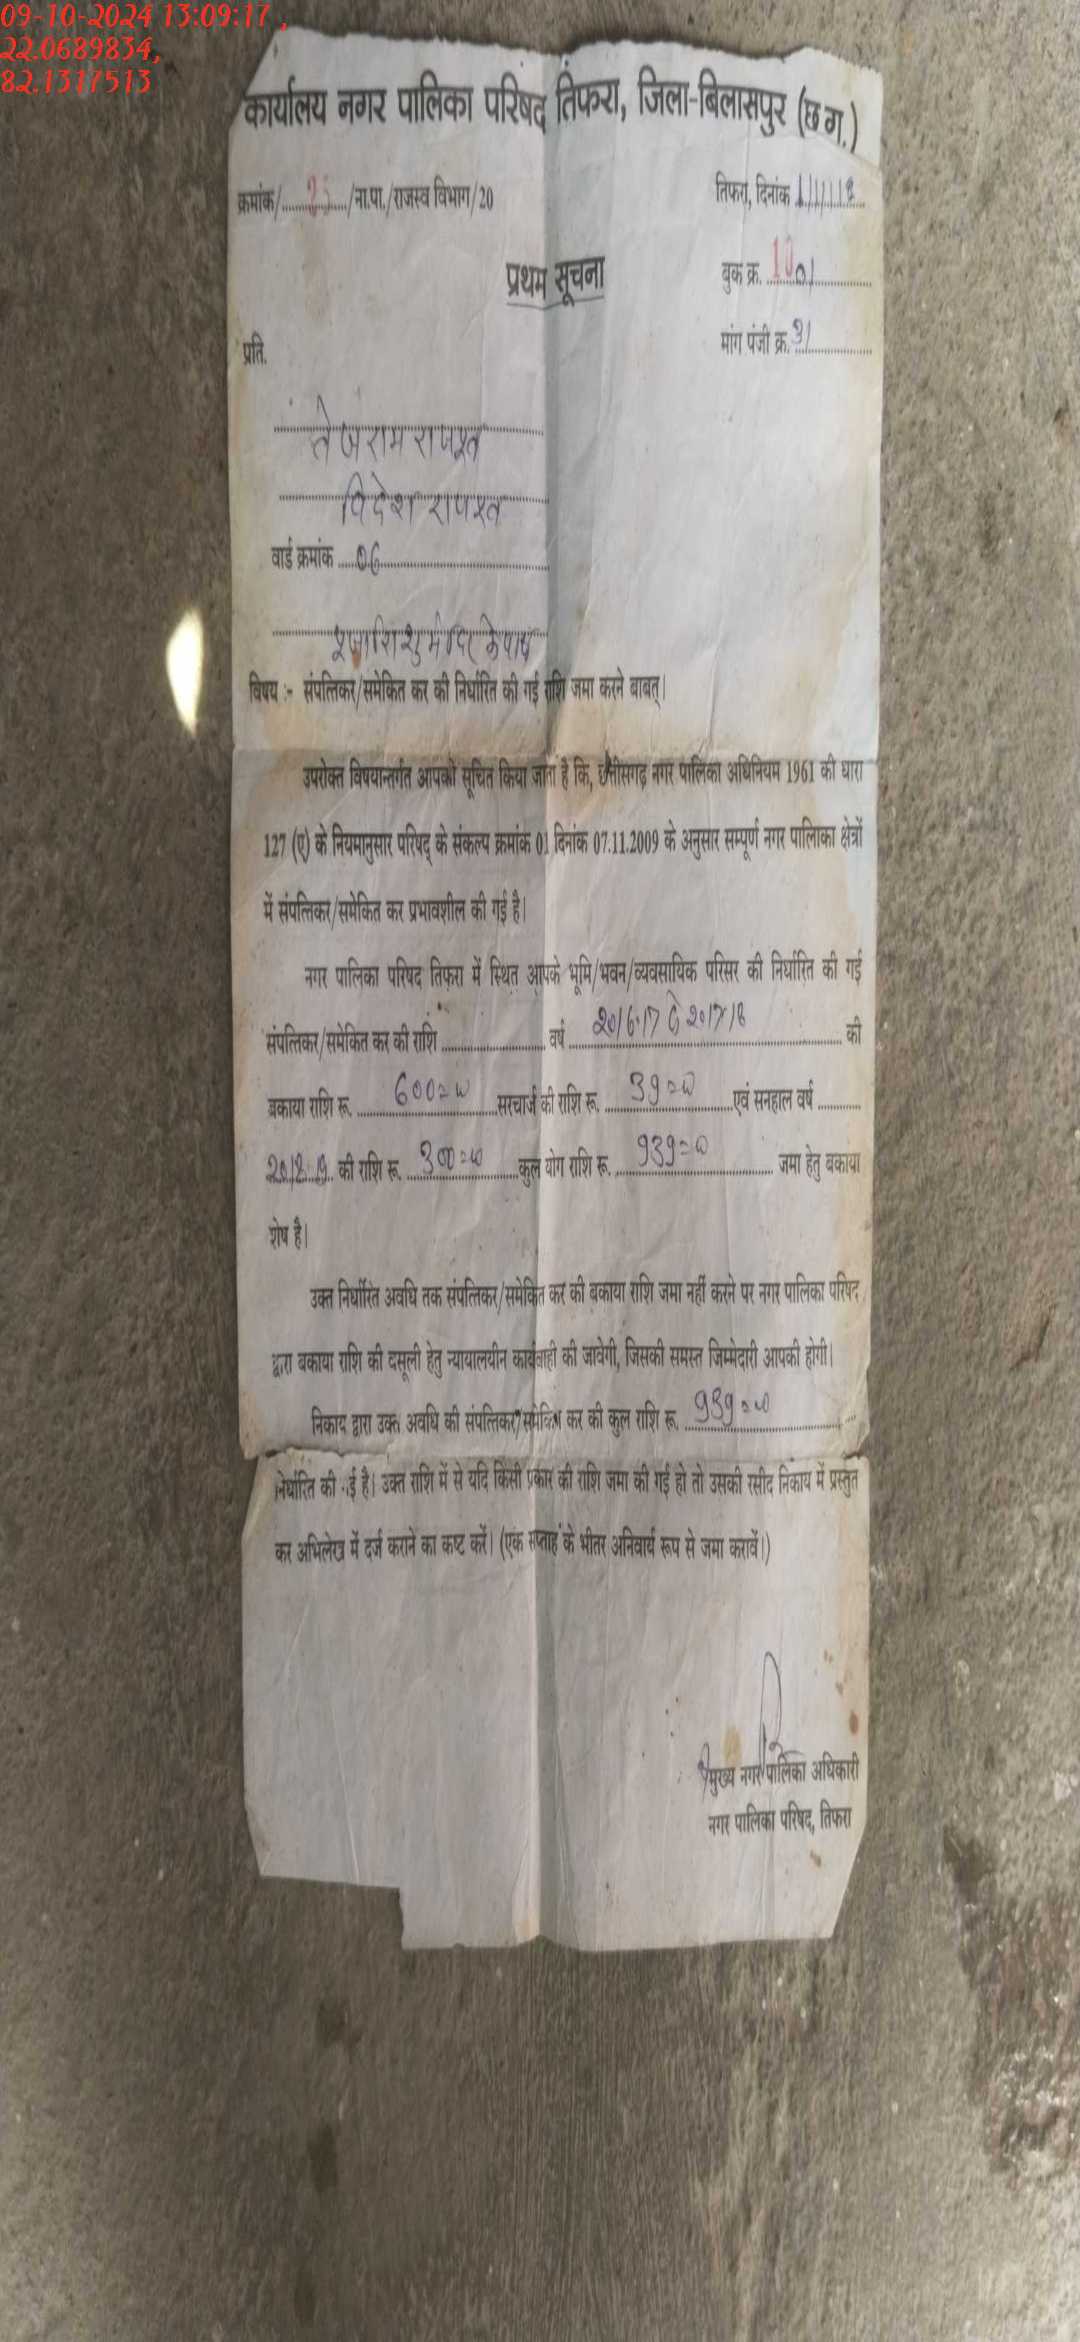 09-10-2024 13:09:17 ,
22.0689834,
82.1317513
कार्यालय नगर पालिका परिषद तिफरा, जिला-बिलासपुर (छ.ग.)
क्रमांक/......25....../ना.पा./राजस्व विभाग/20
तिफरा, दिनांक
प्रथम सूचना
बुक क्र. 1001
मांग पंजी क्र. 31
प्रति.
तेजराम राजपूत
विदेश राजपूत
वार्ड क्रमांक ....06
के पास
विषय :- संपत्तिकर/समेकित कर की निर्धारित की गई राशि जमा करने बाबत्।
उपरोक्त विषयान्तर्गत आपको सूचित किया जाता है कि, छत्तीसगढ़ नगर पालिका अधिनियम 1961 की धारा
127 (ए) के नियमानुसार परिषद् के संकल्प क्रमांक 01 दिनांक 07.11.2009 के अनुसार सम्पूर्ण नगर पालिाका क्षेत्रों
में संपत्तिकर/समेकित कर प्रभावशील की गई है।
नगर पालिका परिषद तिफरा में स्थित आपके भूमि/भवन/व्यवसायिक परिसर की निर्धारित की गई
संपत्तिकर/समेकित कर की राशि .................... वर्ष 2016-17 से 2017-18 की
बकाया राशि रू. 600=00 सरचार्ज की राशि रू. 39=00 एवं सनहाल वर्ष .........
2018-19 की राशि रू. 300=00 कुल योग राशि रू. 939=00 जमा हेतु बकाया
शेष है।
उक्त निर्धारित अवधि तक संपत्तिकर/समेकित कर की बकाया राशि जमा नहीं करने पर नगर पालिका परिषद
द्वारा बकाया राशि की दसूली हेतु न्यायालयीन कार्यवाही की जावेगी, जिसकी समस्त जिम्मेदारी आपकी होगी।
निकाद द्वारा उक्त अवधि की संपत्तिकर/समेकित कर की कुल राशि रू. 939=00
निर्धारित की गई है। उक्त राशि में से यदि किसी प्रकार की राशि जमा की गई हो तो उसकी रसीद निकाय में प्रस्तुत
कर अभिलेख में दर्ज कराने का कष्ट करें। (एक सप्ताह के भीतर अनिवार्य रूप से जमा करावें।)
मुख्य नगर पालिका अधिकारी
नगर पालिका परिषद, तिफरा